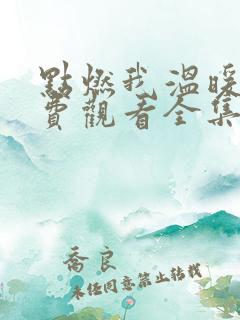 點燃我溫暖
費觀看全集
喬良
未經同意禁止轉載